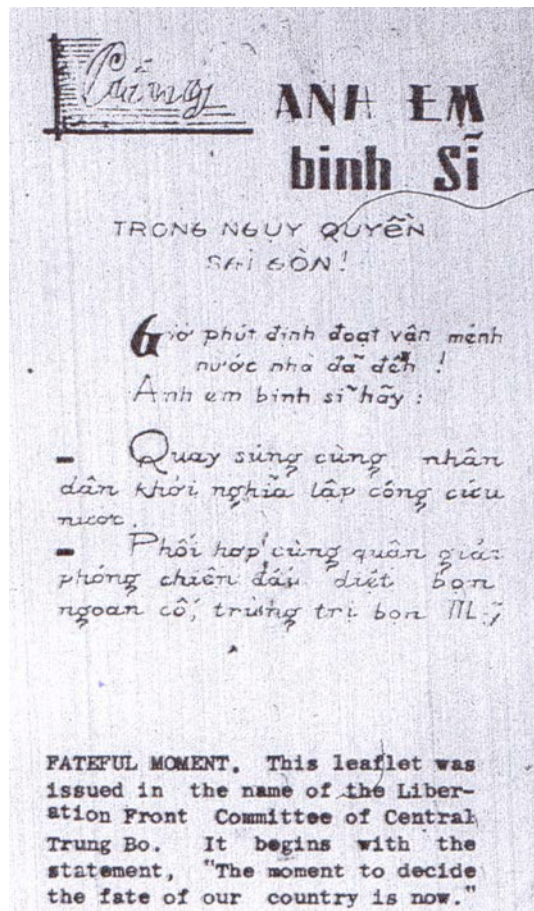 Cùng
ANH EM
binh Sĩ
TRONG NGỤY QUYỀN
SÀI GÒN!
Giờ phút định đoạt vận mệnh
nước nhà đã đến!
Anh em binh sĩ hãy:
- Quay súng cùng nhân
dân khởi nghĩa lập công cứu
nước.
- Phối hợp cùng quân giải
phóng chiến đấu diệt bọn
ngoan cố, trừng trị bọn Mỹ
FATEFUL MOMENT. This leaflet was
issued in the name of the Liber-
ation Front Committee of Central
Trung Bo. It begins with the
statement, "The moment to decide
the fate of our country is now."